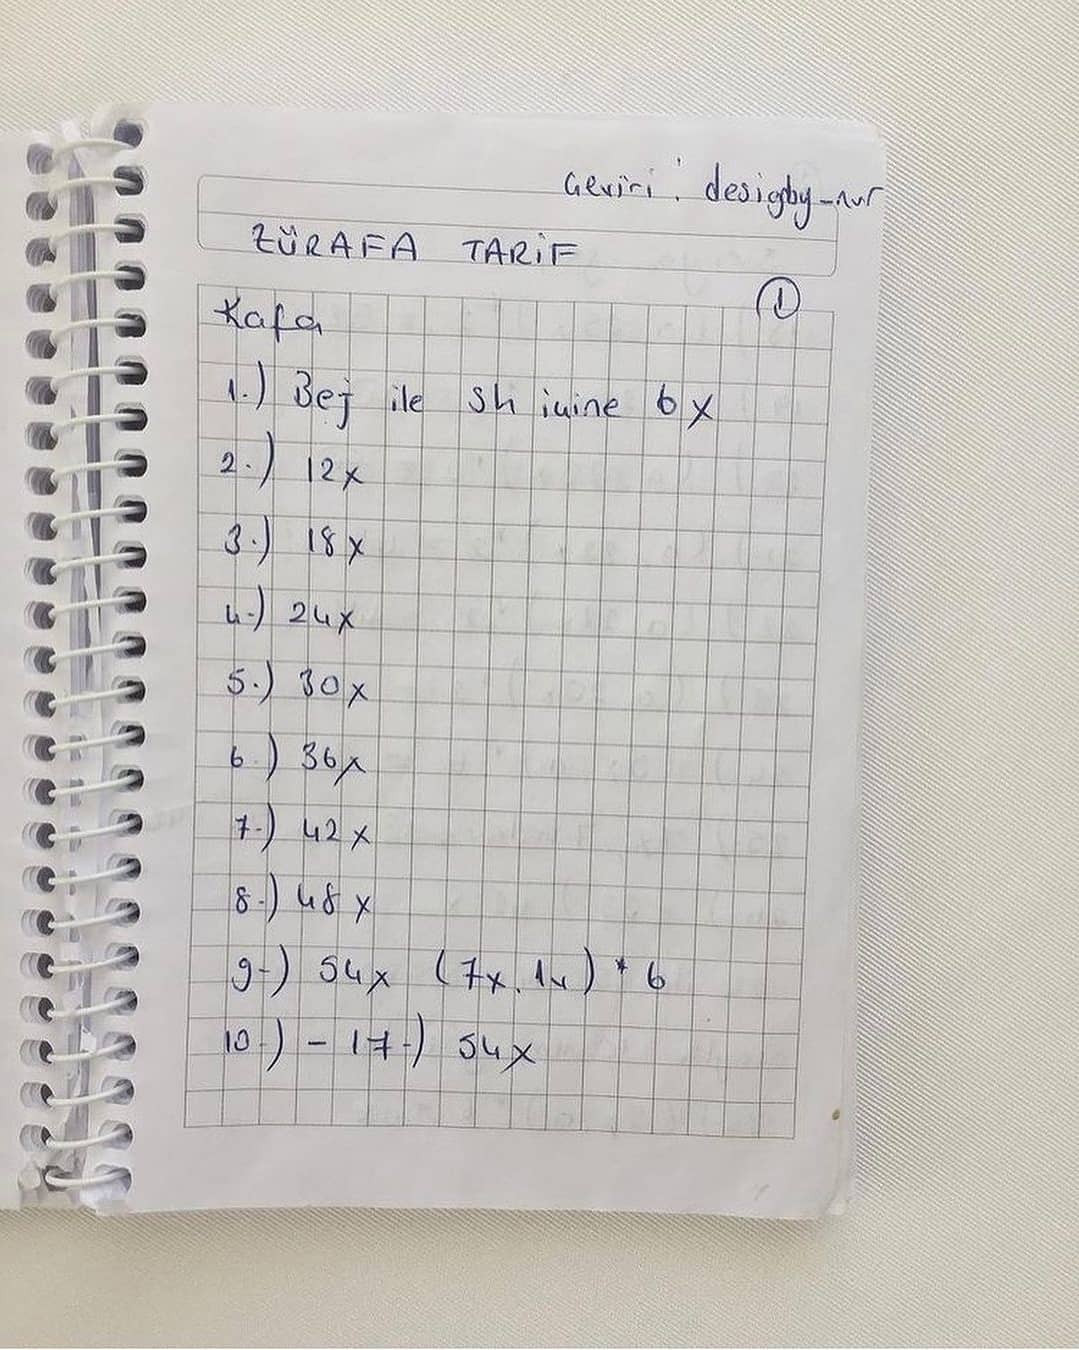 Çeviri : desigby-nur
ZÜRAFA TARİF
1
Kafa
1.) Bej ile Sh içine 6x
2.) 12x
3.) 18x
4.) 24x
5.) 30x
6.) 36x
7.) 42x
8.) 48x
9.) 54x (7x, 1v) * 6
10.) - 17.) 54x